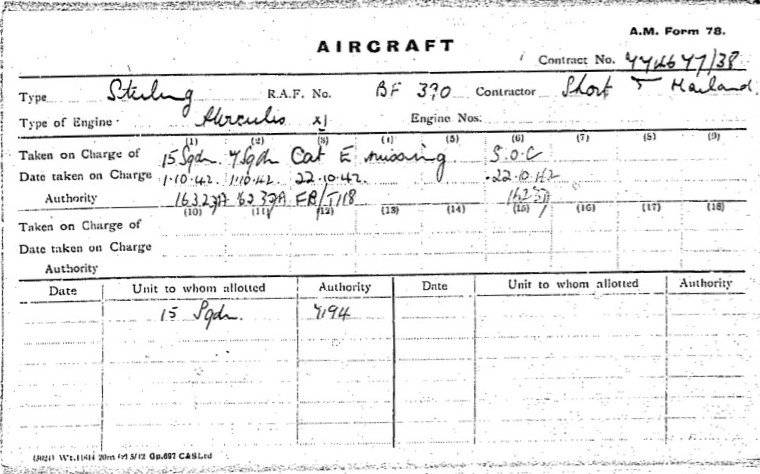 A.M. Form 78.
AIRCRAFT
Contract No. 774677/38
Type Stirling R.A.F. No. BF 390 Contractor Short & Harland
Type of Engine Hercules XI Engine Nos.
(1) (2) (3) (4) (5) (6) (7) (8) (9)
Taken on Charge of 15 Sqdn. 7 Sqdn Cat E missing S.O.C
Date taken on Charge 1.10.42. 1.10.42. 22.10.42. 22.10.42
Authority 16323A 16232A FB/T118
(10) (11) (12) (13) (14) (15) (16) (17) (18)
Taken on Charge of
Date taken on Charge
Authority
Date Unit to whom allotted Authority Date Unit to whom allotted Authority
15 Sqdn. 7194
Gp.697 C&SLtd